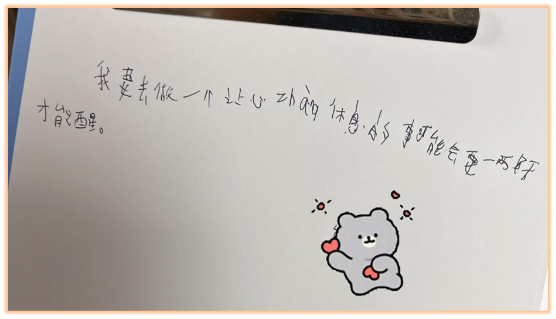 我要去做一个让心zhàng休息的事可能会要一两天
才能醒。